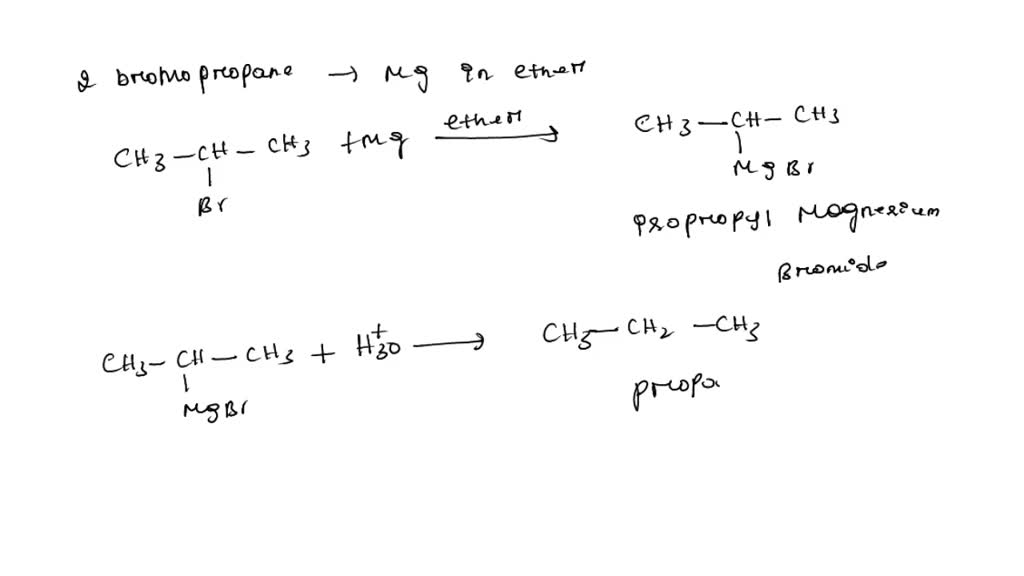 2 bromopropane → Mg in ether
CH3 — CH — CH3 + Mg ether → CH3 — CH — CH3
| |
Br MgBr
Isopropyl Magnesium
Bromide
CH3 — CH — CH3 + H3O+ → CH3 — CH2 — CH3
|
MgBr
propa